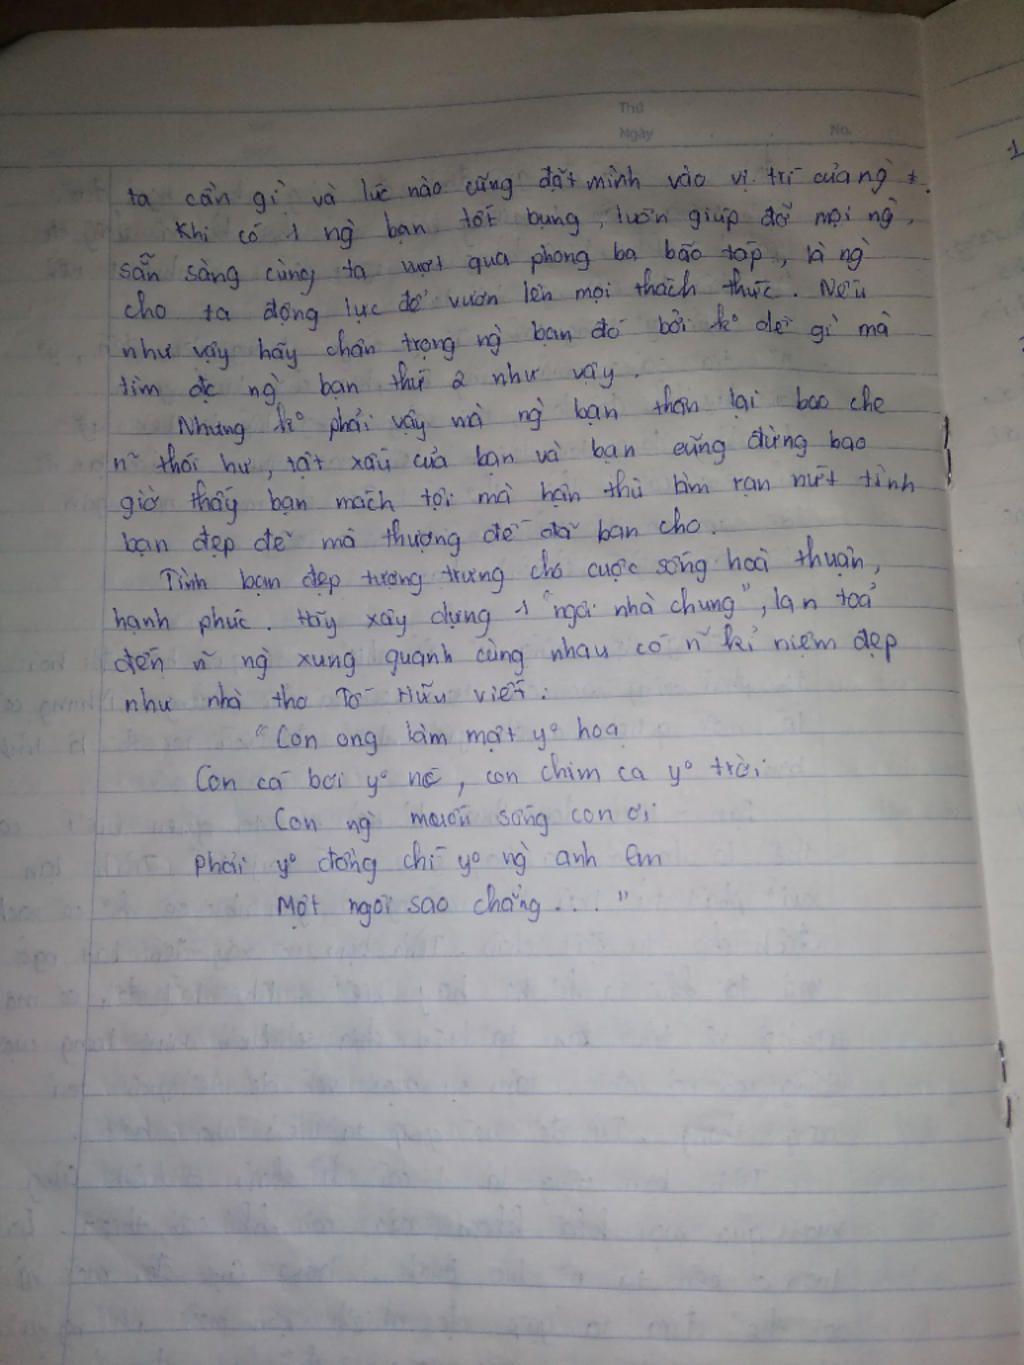 Thứ
Ngày No.
1
ta cần gì và lúc nào cũng đặt mình vào vị trí của ng` t.
Khi có 1 ng` bạn tốt bụng, luôn giúp đỡ mọi ng`,
sẵn sàng cùng ta vượt qua phong ba bão táp, là ng`
cho ta động lực để vươn lên mọi thách thức. Nếu
như vậy hãy chân trọng ng` bạn đó bởi k° dễ gì mà
tìm đc ng` bạn thứ 2 như vậy.
Nhưng k° phải vậy mà ng` bạn thân lại bao che
n~ thói hư, tật xấu của bạn và bạn cũng đừng bao
giờ thấy bạn mách tội mà hận thù làm rạn nứt tình
bạn đẹp đẽ mà thượng đế đã ban cho.
Tình bạn đẹp tượng trưng cho cuộc sống hoà thuận,
hạnh phúc. Hãy xây dựng 1 "ngôi nhà chung", lan toả
đến n~ ng` xung quanh cùng nhau có n~ kỉ niệm đẹp
như nhà thơ Tố Hữu viết:
"Con ong làm mật y° hoa
Con cá bơi y° nc, con chim ca y° trời
Con ng` muốn sống con ơi
Phải y° đồng chí y° ng` anh em
Một ngôi sao chẳng..."